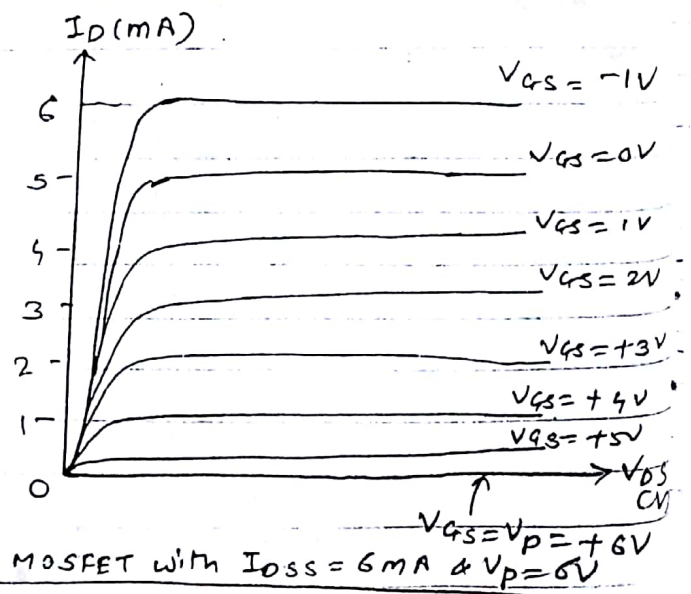 ID(mA)
VGS = -1V
6
VGS = 0V
5
VGS = 1V
4
VGS = 2V
3
VGS = +3V
2
VGS = +4V
1
VGS = +5V
0
VDS
(V)
VGS = VP = +6V
MOSFET with IDSS = 6mA & VP = 6V